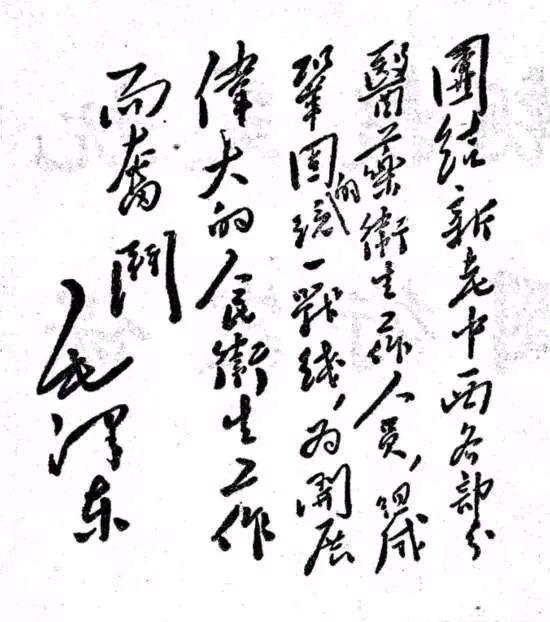 團结新老中西各部分
醫藥衛生工作人員，组成
鞏固的统一戰线，为開展
偉大的人民衛生工作
而奮鬥
毛澤东